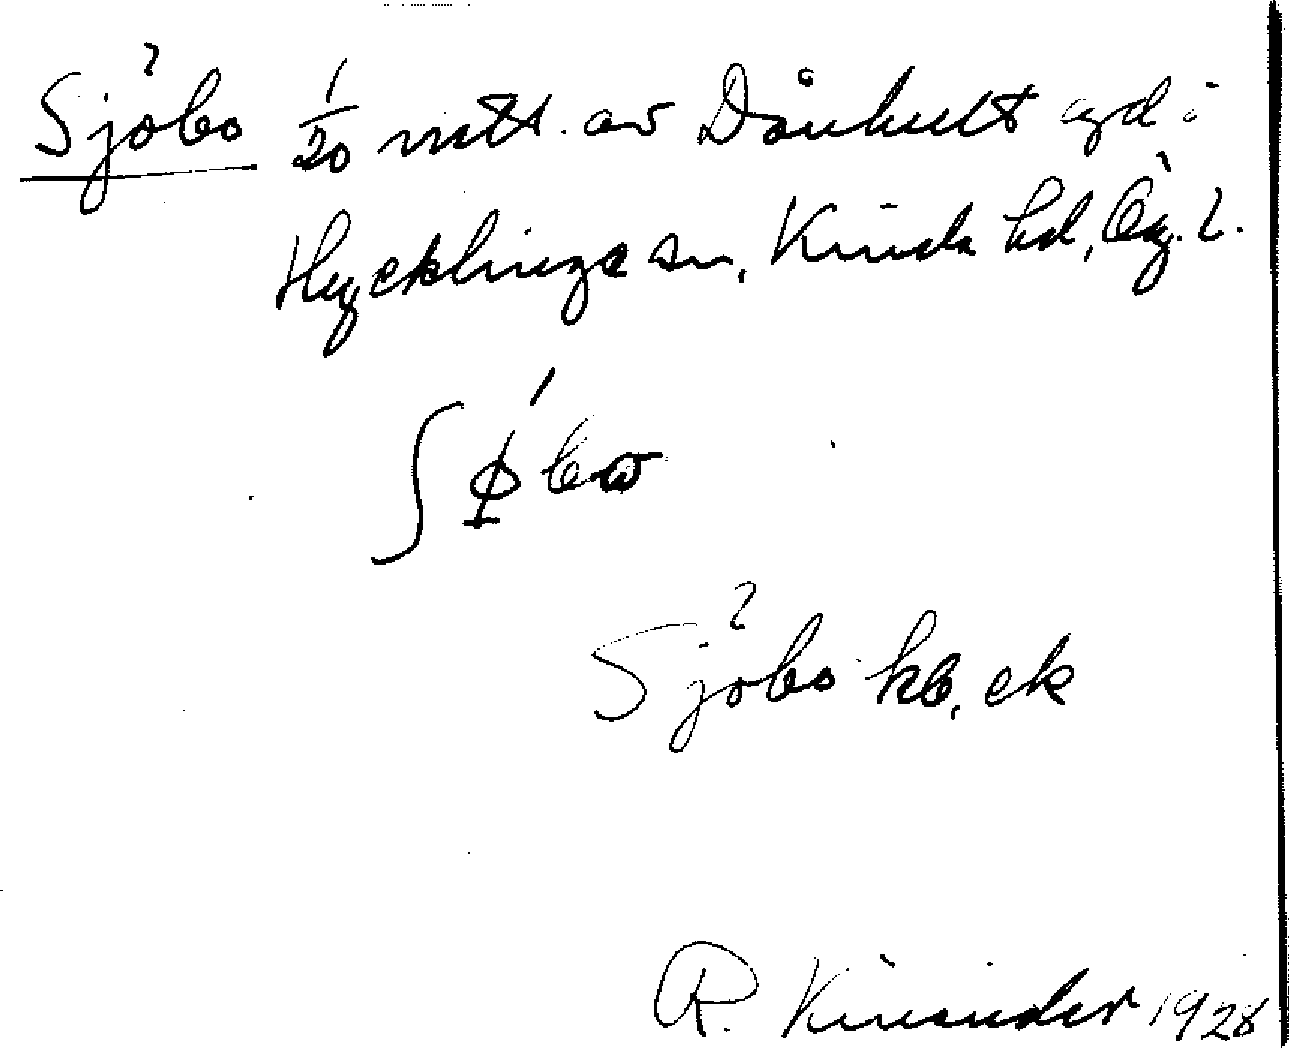 Sjöbo 1/20 mtl. av Dånhult gd i
Hycklinge sn, Kinda hd, Ög. l.
ʃø̀bω
Sjöbo kb, ek
R. Kinander 1928